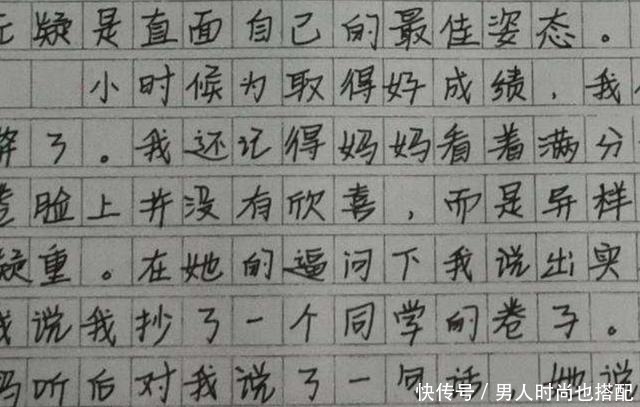 疑是直面自己的最佳姿态。
小时候为取得好成绩，我
弊了。我还记得妈妈看着满分
卷脸上并没有欣喜，而是异样
凝重。在她的逼问下我说出实
我说我抄了一个同学的卷子。
妈听后对我说了一句话，她说
快传号／男人时尚也搭配